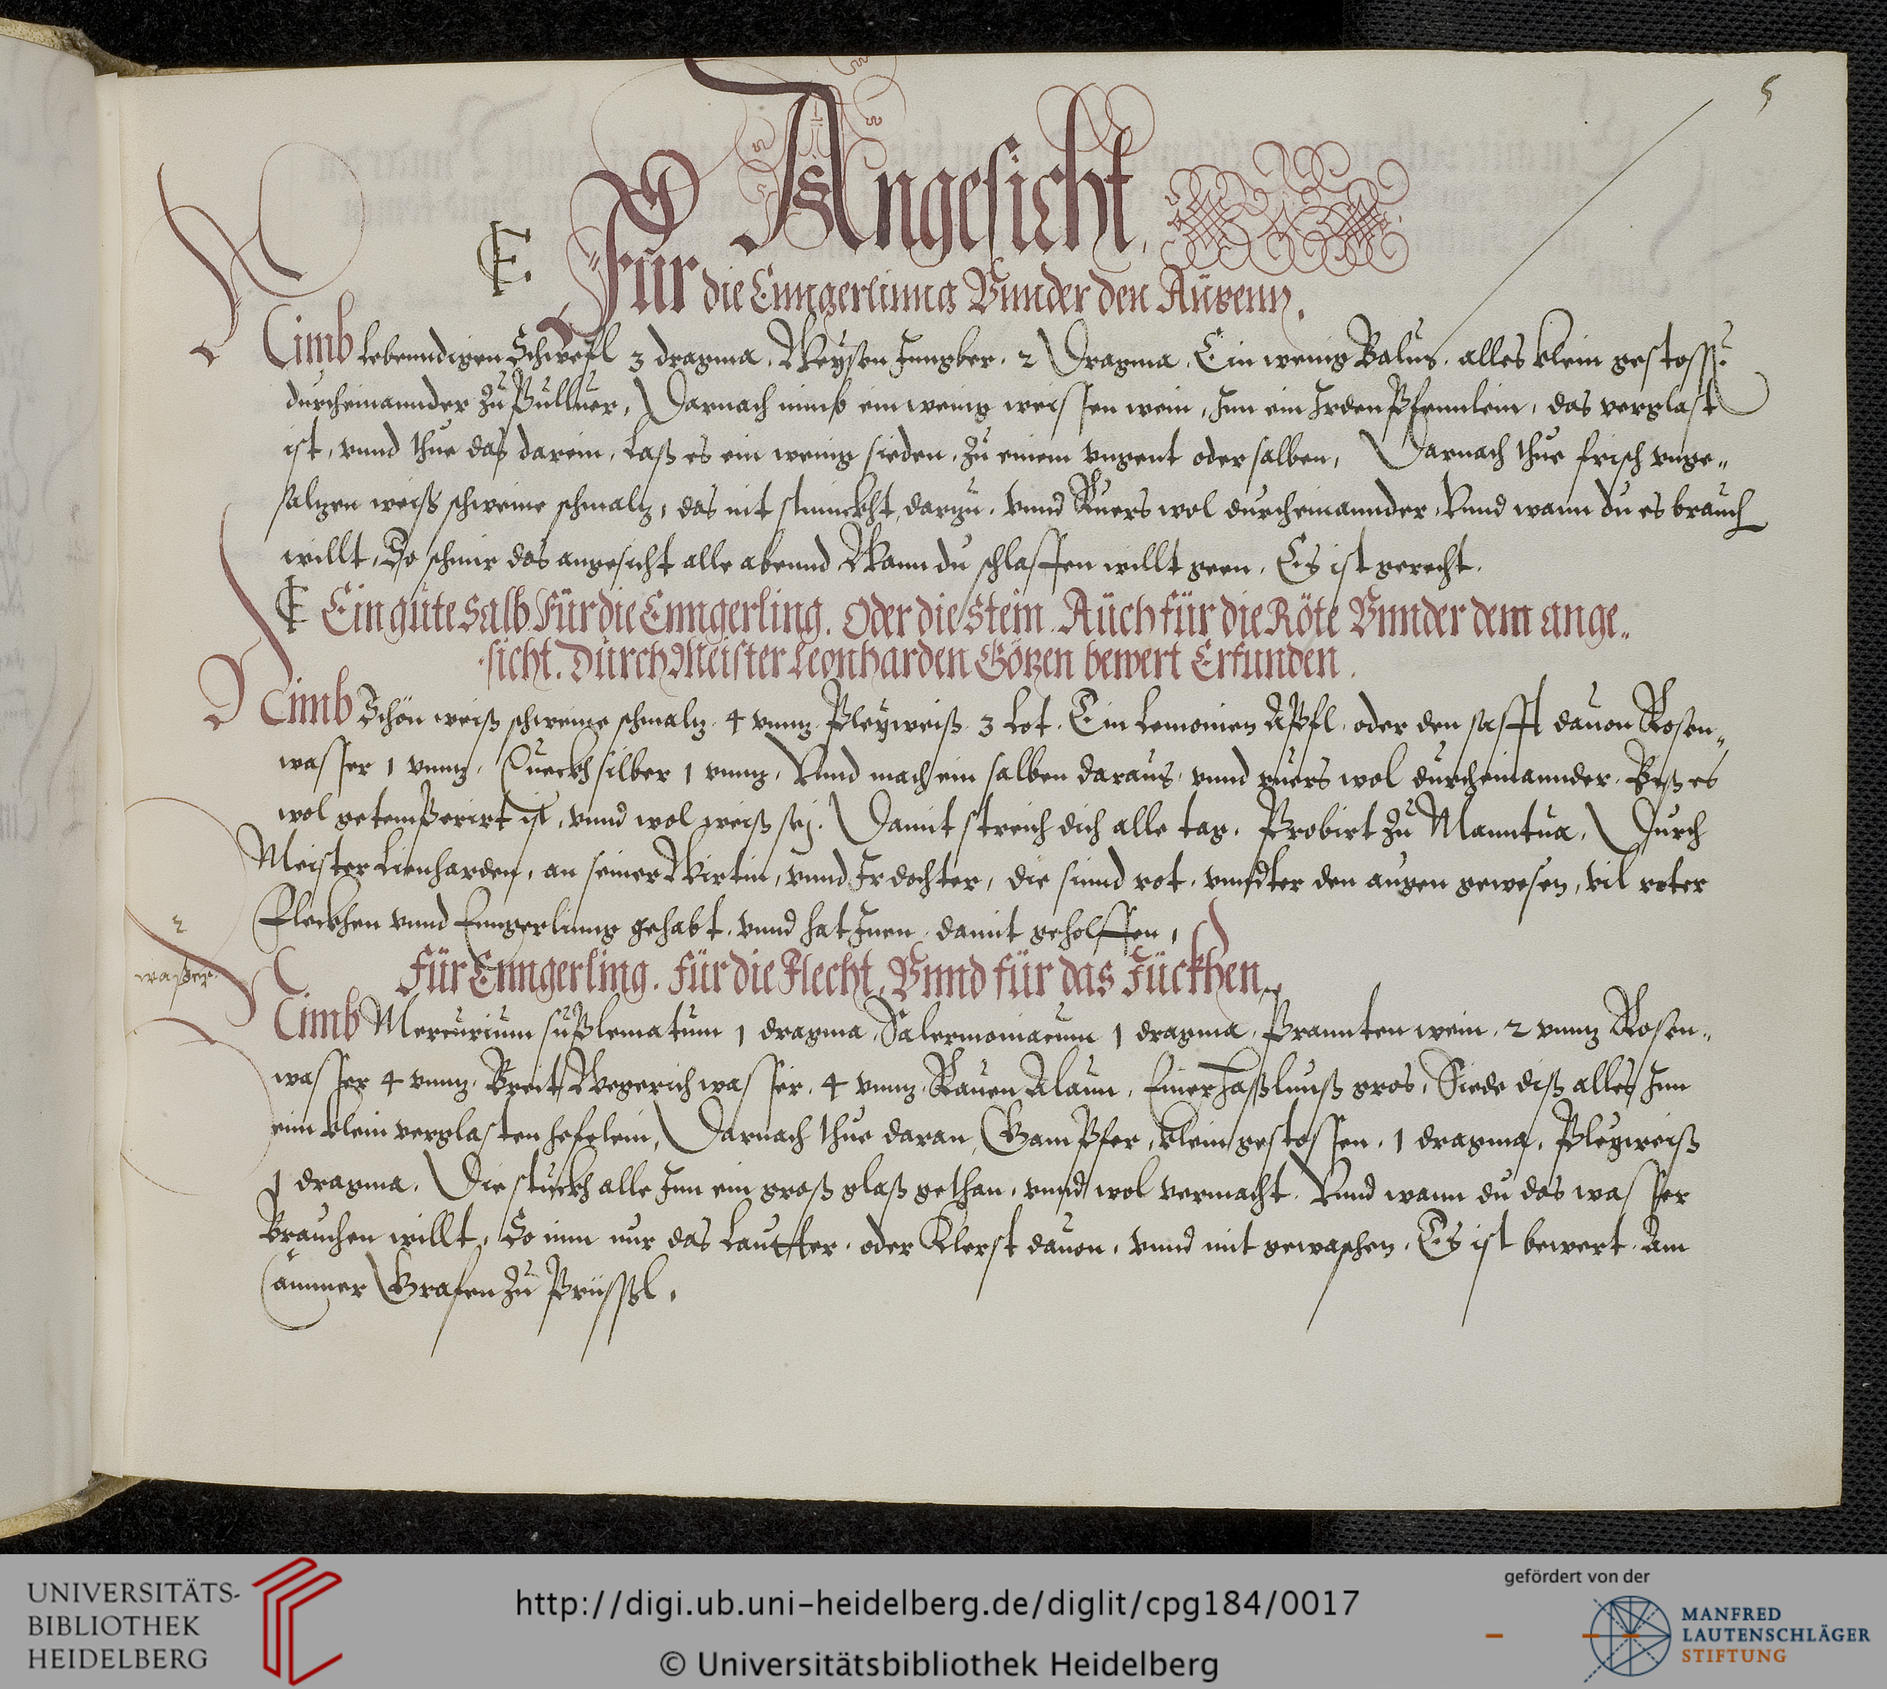 5
Angesicht.
E. Für die Enngerlinng Vnnder den Augenn.
Nimb lebenndigen Schwefl 3 dragma. Weysen Jungber. 2 Dragma. Ein wenig Balus. alles klein gestossen
durcheinannder zu Pulluer, Darnach nimb ein wenig weissen wein, Jnn ein Jrden Pfennlein, das verglast
ist, vnnd thue das darein, Laß es ein wenig sieden, zu einem vngent oder salben, Darnach thue frisch vnge„
salzen weiß schweine schmaltz, das nit stinnckht, darzu. vnnd Ruers wol durcheinannder. Vnnd wann du es brauch
willt, So schmir das angesicht alle abennd Wann du schlaffen willt geen. Es ist gerecht.
E Ein gute Salb. Für die Enngerling. Oder die Stein. Auch für die Röte Vnnder dem ange„
sicht. Durch Meister Leonharden Götzen bewert Erfunden.
Nimb Schön weiß schweine schmaltz. 4 vnnz. Pleyweiß. 3 Lot. Ein Lemonien Apfl. oder den safft dauon Rosen„
wasser 1 vnnz. Queckhsilber 1 vnnz. Vnnd mach ein salben daraus, vnnd ruers wol durcheinannder. Biß es
wol getemperirt ist, vnnd wol weiß sej. Damit streich dich alle tag. Probirt zu Manntua. Durch
Meister Lienharden, an seiner Wirtin, vnnd Jr dochter, die sinnd rot. vnndter den augen gewesen, vil roter
Fleckhen vnnd Enngerlinng gehabt. vnnd hat Jnen damit geholffen,
2
wasser.
Für Enngerling. Für die Flecht. Vnnd für das Jückhen.
Nimb Mercurium süßlematum 1 dragma. Salermoniacum 1 dragma. Prannten wein. 2 vnnz Rosen„
wasser 4 vnnz. Breit Wegerich wasser. 4 vnnz. Rauen Alaun, Einer Haßlnuß gros. Siede diß alles Jnn
ein klein verglasten hefelein, Darnach thue daran, Gampffer, klein gestossen. 1 dragma. Pleyweiß
1 dragma. Die stuckh alle Jnn ein groß glaß gethan, vnnd wol vermacht. Vnnd wann du das wasser
Brauchen willt. So nim nur das Lautter. oder Klerst dauon, vnnd mit gewaschen. Es ist bewert. Am
Cammer Grafen zu Prüssl.
UNIVERSITÄTS-
BIBLIOTHEK
HEIDELBERG
http://digi.ub.uni-heidelberg.de/diglit/cpg184/0017
© Universitätsbibliothek Heidelberg
gefördert von der
MANFRED
LAUTENSCHLÄGER
STIFTUNG